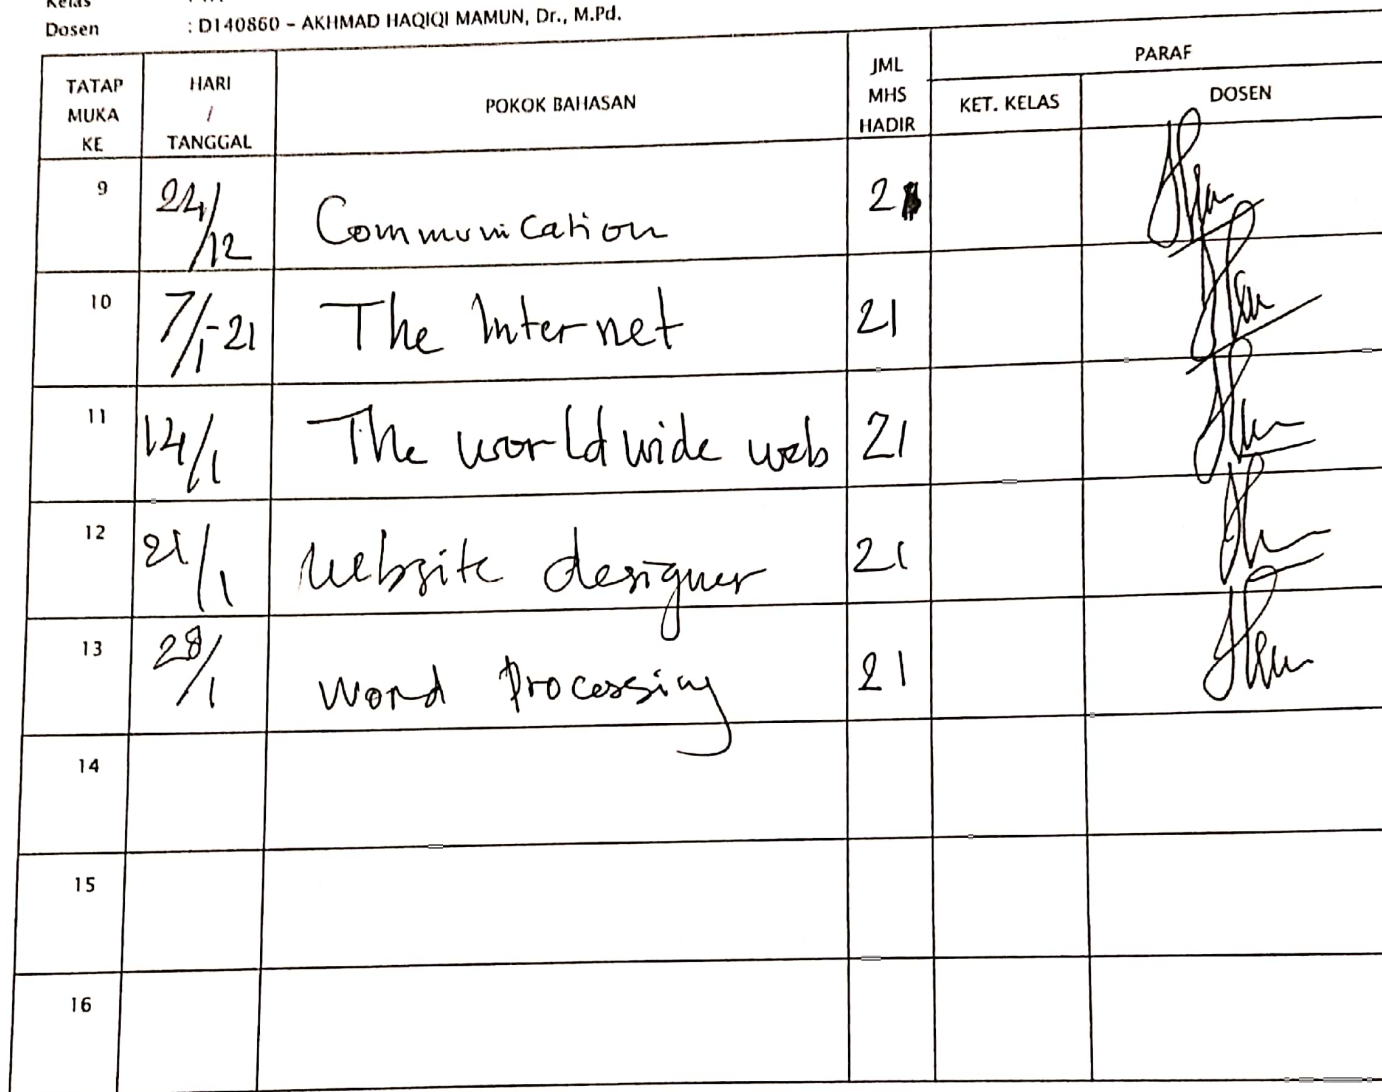 Kelas
Dosen : D140860 – AKHMAD HAQIQI MAMUN, Dr., M.Pd.
TATAP MUKA KE HARI / TANGGAL POKOK BAHASAN JML MHS HADIR PARAF
KET. KELAS DOSEN
9 24/12 Communication 21
10 7/1-21 The Internet 21
11 14/1 The world wide web 21
12 21/1 website designer 21
13 28/1 word Processing 21
14
15
16